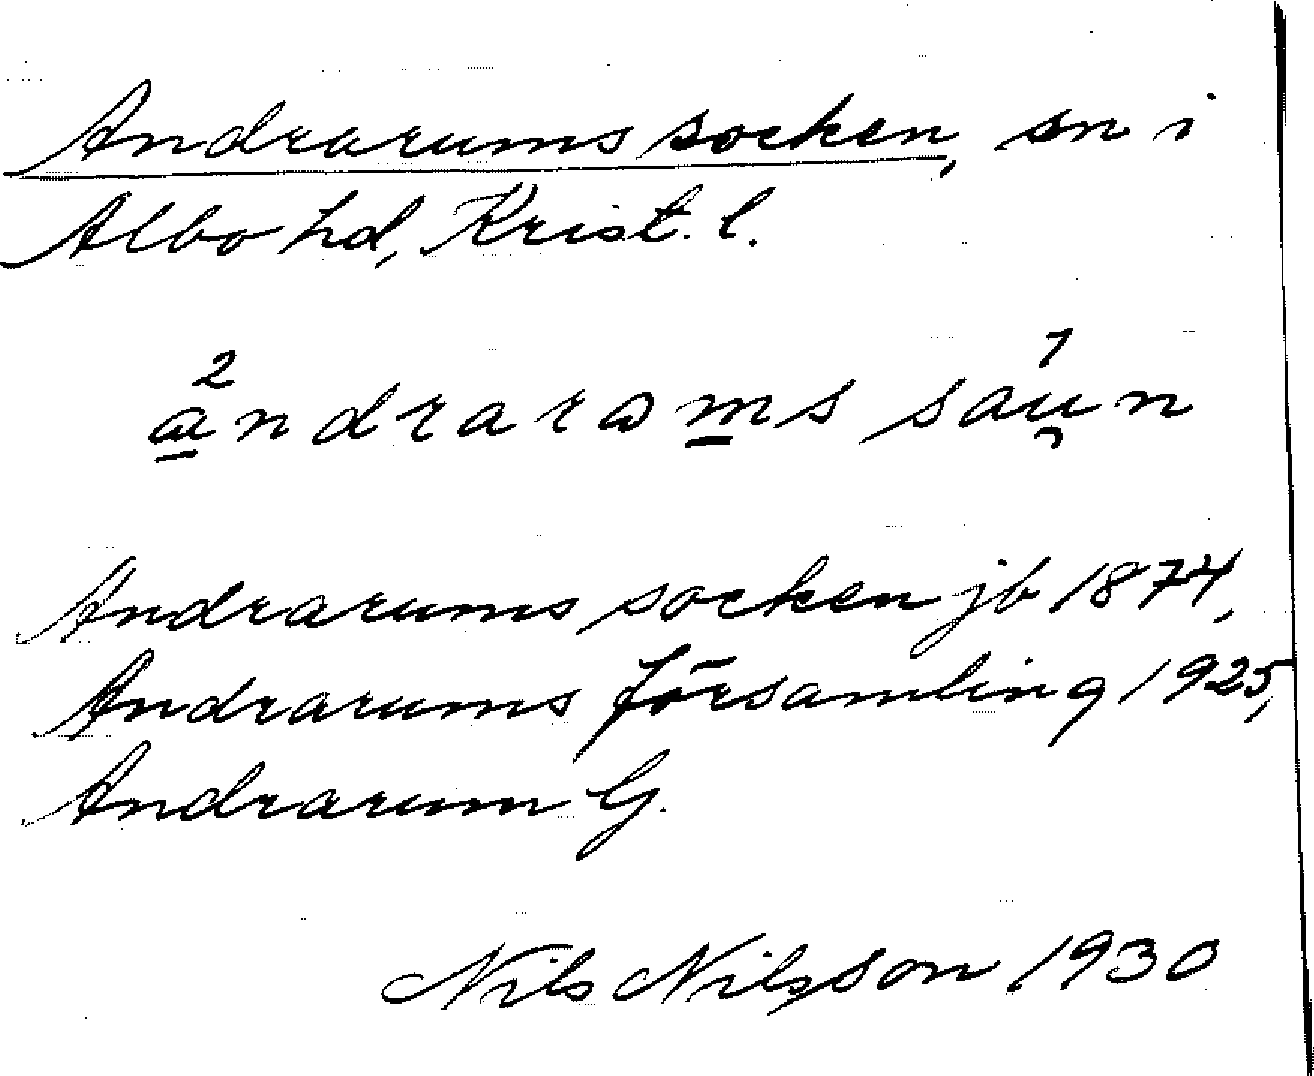 Andrarums socken, sn i
Albo hd, Krist. l.
Andrarums socken jb 1874,
Andrarums församling 1925,
Andrarum G.
Nils Nilsson 1930